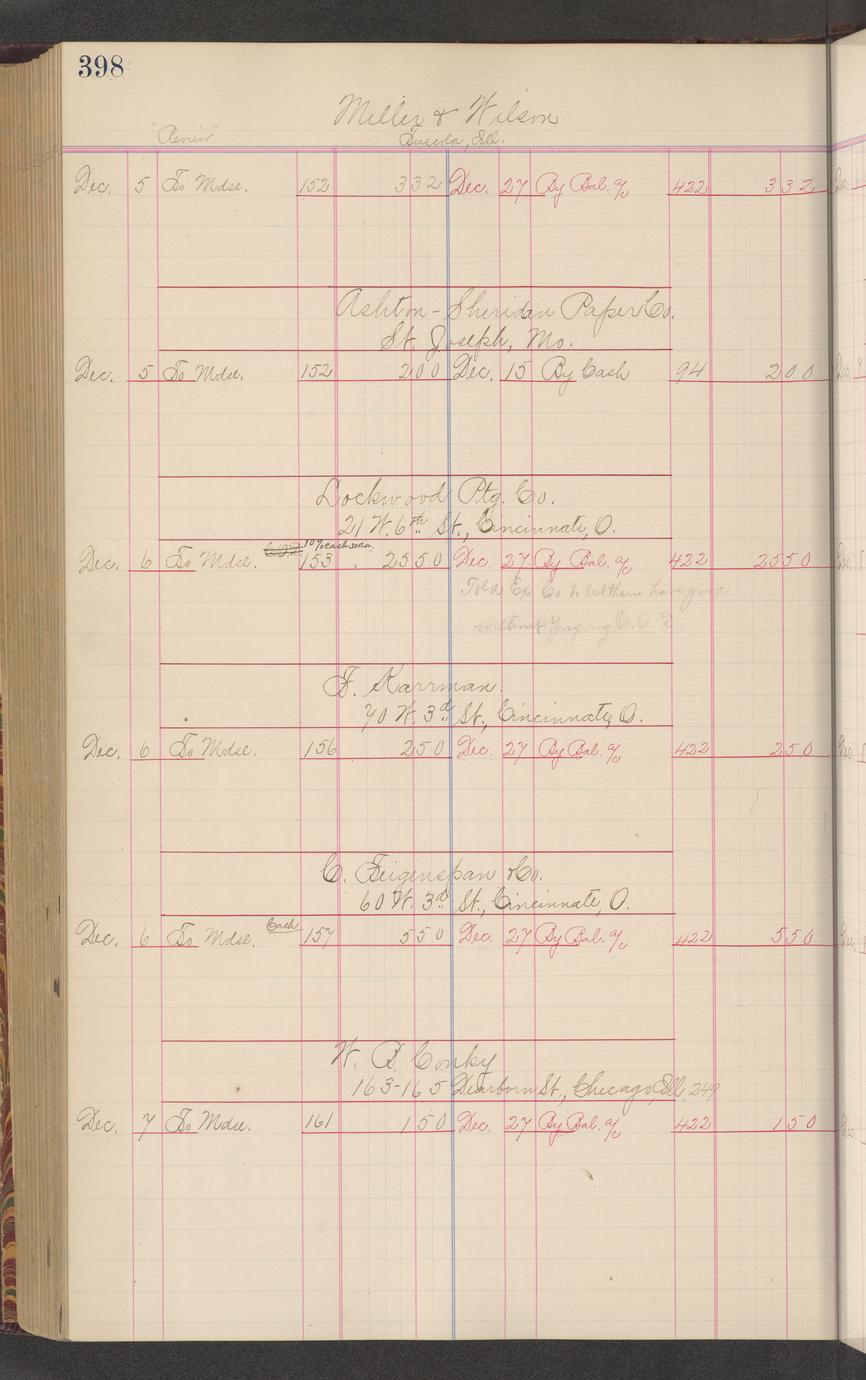 398
Miller & Wilson
"Review" Tuscola, Ill.
Dec. 5 To Mdse. 152 3 32 Dec. 27 By Bal. a/c 422 3 32
Ashton-Sheridan Paper Co.
St. Joseph, Mo.
Dec. 5 To Mdse. 152 2 00 Dec. 15 By Cash 94 2 00
Lockwood Ptg. Co.
21 W. 6th St., Cincinnati, O.
C.O.D. 10% cash 30da.
Dec. 6 To Mdse. 153 25 50 Dec. 27 By Bal. a/c 422 25 50
Told Ex Co to let them have good
without paying C.O.D.
F. Karrman.
70 W. 3d St., Cincinnati, O.
Dec. 6 To Mdse. 156 2 50 Dec. 27 By Bal. a/c 422 2 50
C. Feigenspan & Co.
60 W. 3d St., Cincinnati, O.
Dec. 6 To Mdse. Cash 157 5 50 Dec. 27 By Bal. a/c 422 5 50
W. B. Conky
163-165 Dearborn St., Chicago, Ill. 249
Dec. 7 To Mdse. 161 1 50 Dec. 27 By Bal. a/c 422 1 50